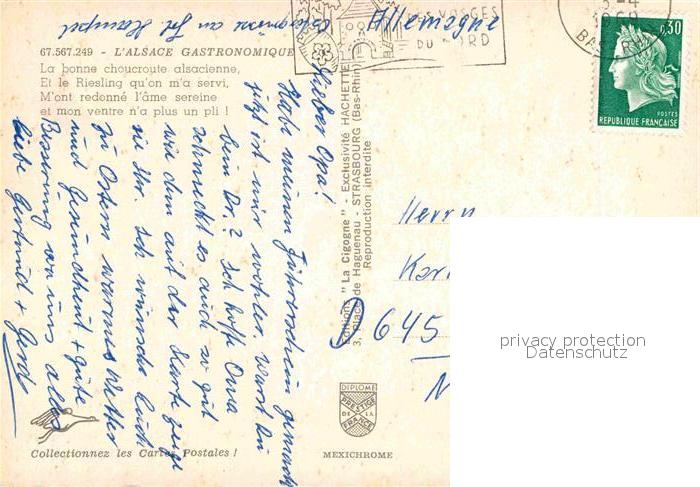 Allemagne
67.567.249 - L'ALSACE GASTRONOMIQUE
La bonne choucroute alsacienne,
Et le Riesling qu'on m'a servi,
M'ont redonné l'âme sereine
et mon ventre n'a plus un pli !
VOSGES
DU NORD
1969
0,30
POSTES
REPUBLIQUE FRANÇAISE
Lieber Opa!
Habe meinen Führerschein gemacht
jetzt ist mir wohler. Warst Du
beim Dr.? Ich hoffe Oma
schmeckt es auch so gut
wie dem auf der Karte
Ihr. Ich wünsche Euch
zu Ostern warmes Wetter
und Gesundheit + gute
Besserung von uns allen
Liebe Gertrud + Gerd
Editions "La Cigogne" - Exclusivité HACHETTE
3, Place de Haguenau - STRASBOURG (Bas-Rhin)
Reproduction interdite
Herrn
Kar
D 645
privacy protection
Datenschutz
DIPLOME
PRESTIGE
DE LA
FRANCE
Collectionnez les Cartes Postales !
MEXICHROME